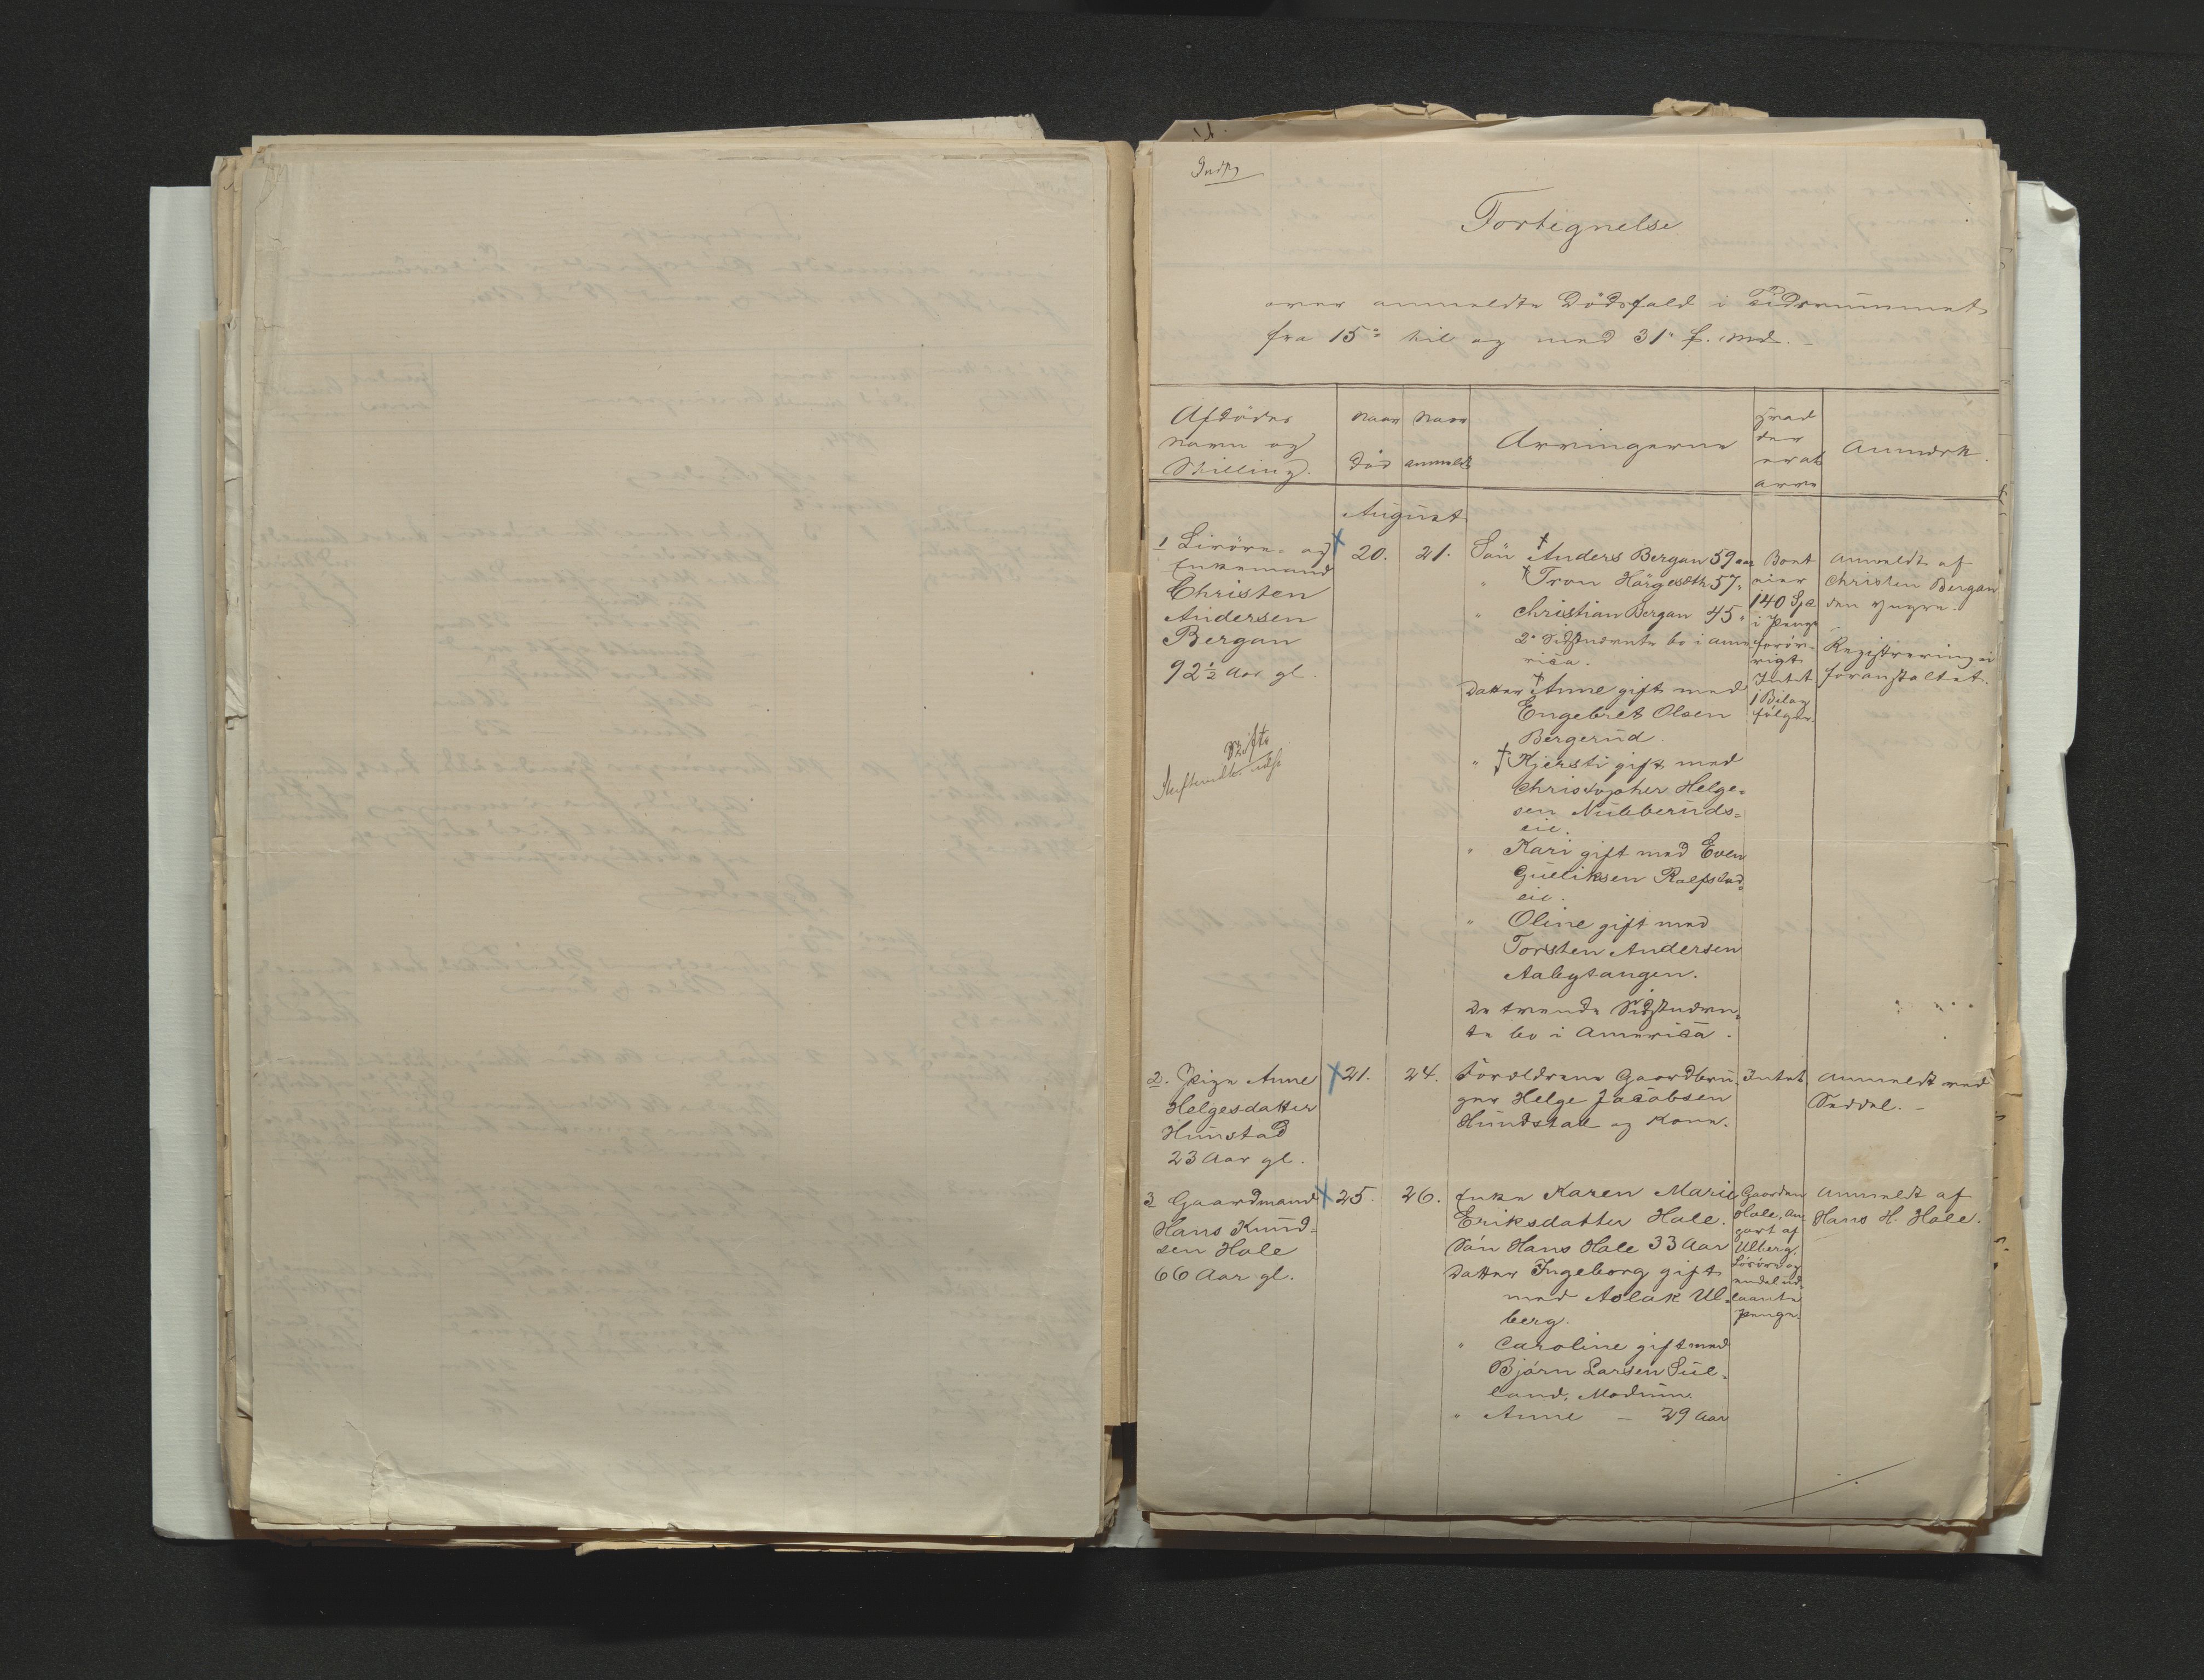 Fortegnelse
over anmeldte Dödsfald i Tidsrummet
fra 15de til og med 31 f. Md.
Afdödes
Navn og
Stilling.
Naar
död
Naar
anmeldt
Arvingerne
Hvad
der
er at
arve
Anmærk.
August
1 Livöre- og
Enkemand
Christen
Andersen
Bergan
92½ Aar gl.
20.
21.
Sön † Anders Bergan 59 aar
" † Tron Hörgesæth 57 "
" Christian Bergan 45 "
2de Sidstnævnte bo i Ame
rica.
Datter † Anne gift med
Engebret Olsen
Bergerud.
" † Kjersti gift med
Christopher Helge-
sen Nubberuds-
eie.
" Kari gift med Even
Gulliksen Ralfstad-
eie.
" Oline gift med
Torsten Andersen
Aabytangen.
De tvende Sidstnævn-
te bo i America.
140 Spd
i Penge
foröv-
rigt
Intet
1 Bilag
fölger.
Anmeldt af
Christen Bergan
den yngre.
Registrering ei
foranstaltet.
Skifte
2. Pige Anne
Helgesdatter
Hunstad
23 Aar gl.
21.
24.
Foreldrene Gaardbru-
ger Helge Jacobsen
Hundstad og Kone.
Intet
Anmeldt ved
Seddel. -
3 Gaardmand
Hans Knud-
sen Hole
66 Aar gl.
25.
26.
Enke Karen Marie
Eriksdatter Hole.
Sön Hans Hole 33 Aar
Datter Ingeborg gift
med Aslak Ul-
berg.
" Caroline gift med
Björn Larsen Sul-
land, Modum.
" Anne - 29 Aar
Gaarden
Hole, en
part af
Ulberg,
Lösöre og
endel ud-
laante
penge.
Anmeldt af
Hans H. Hole.